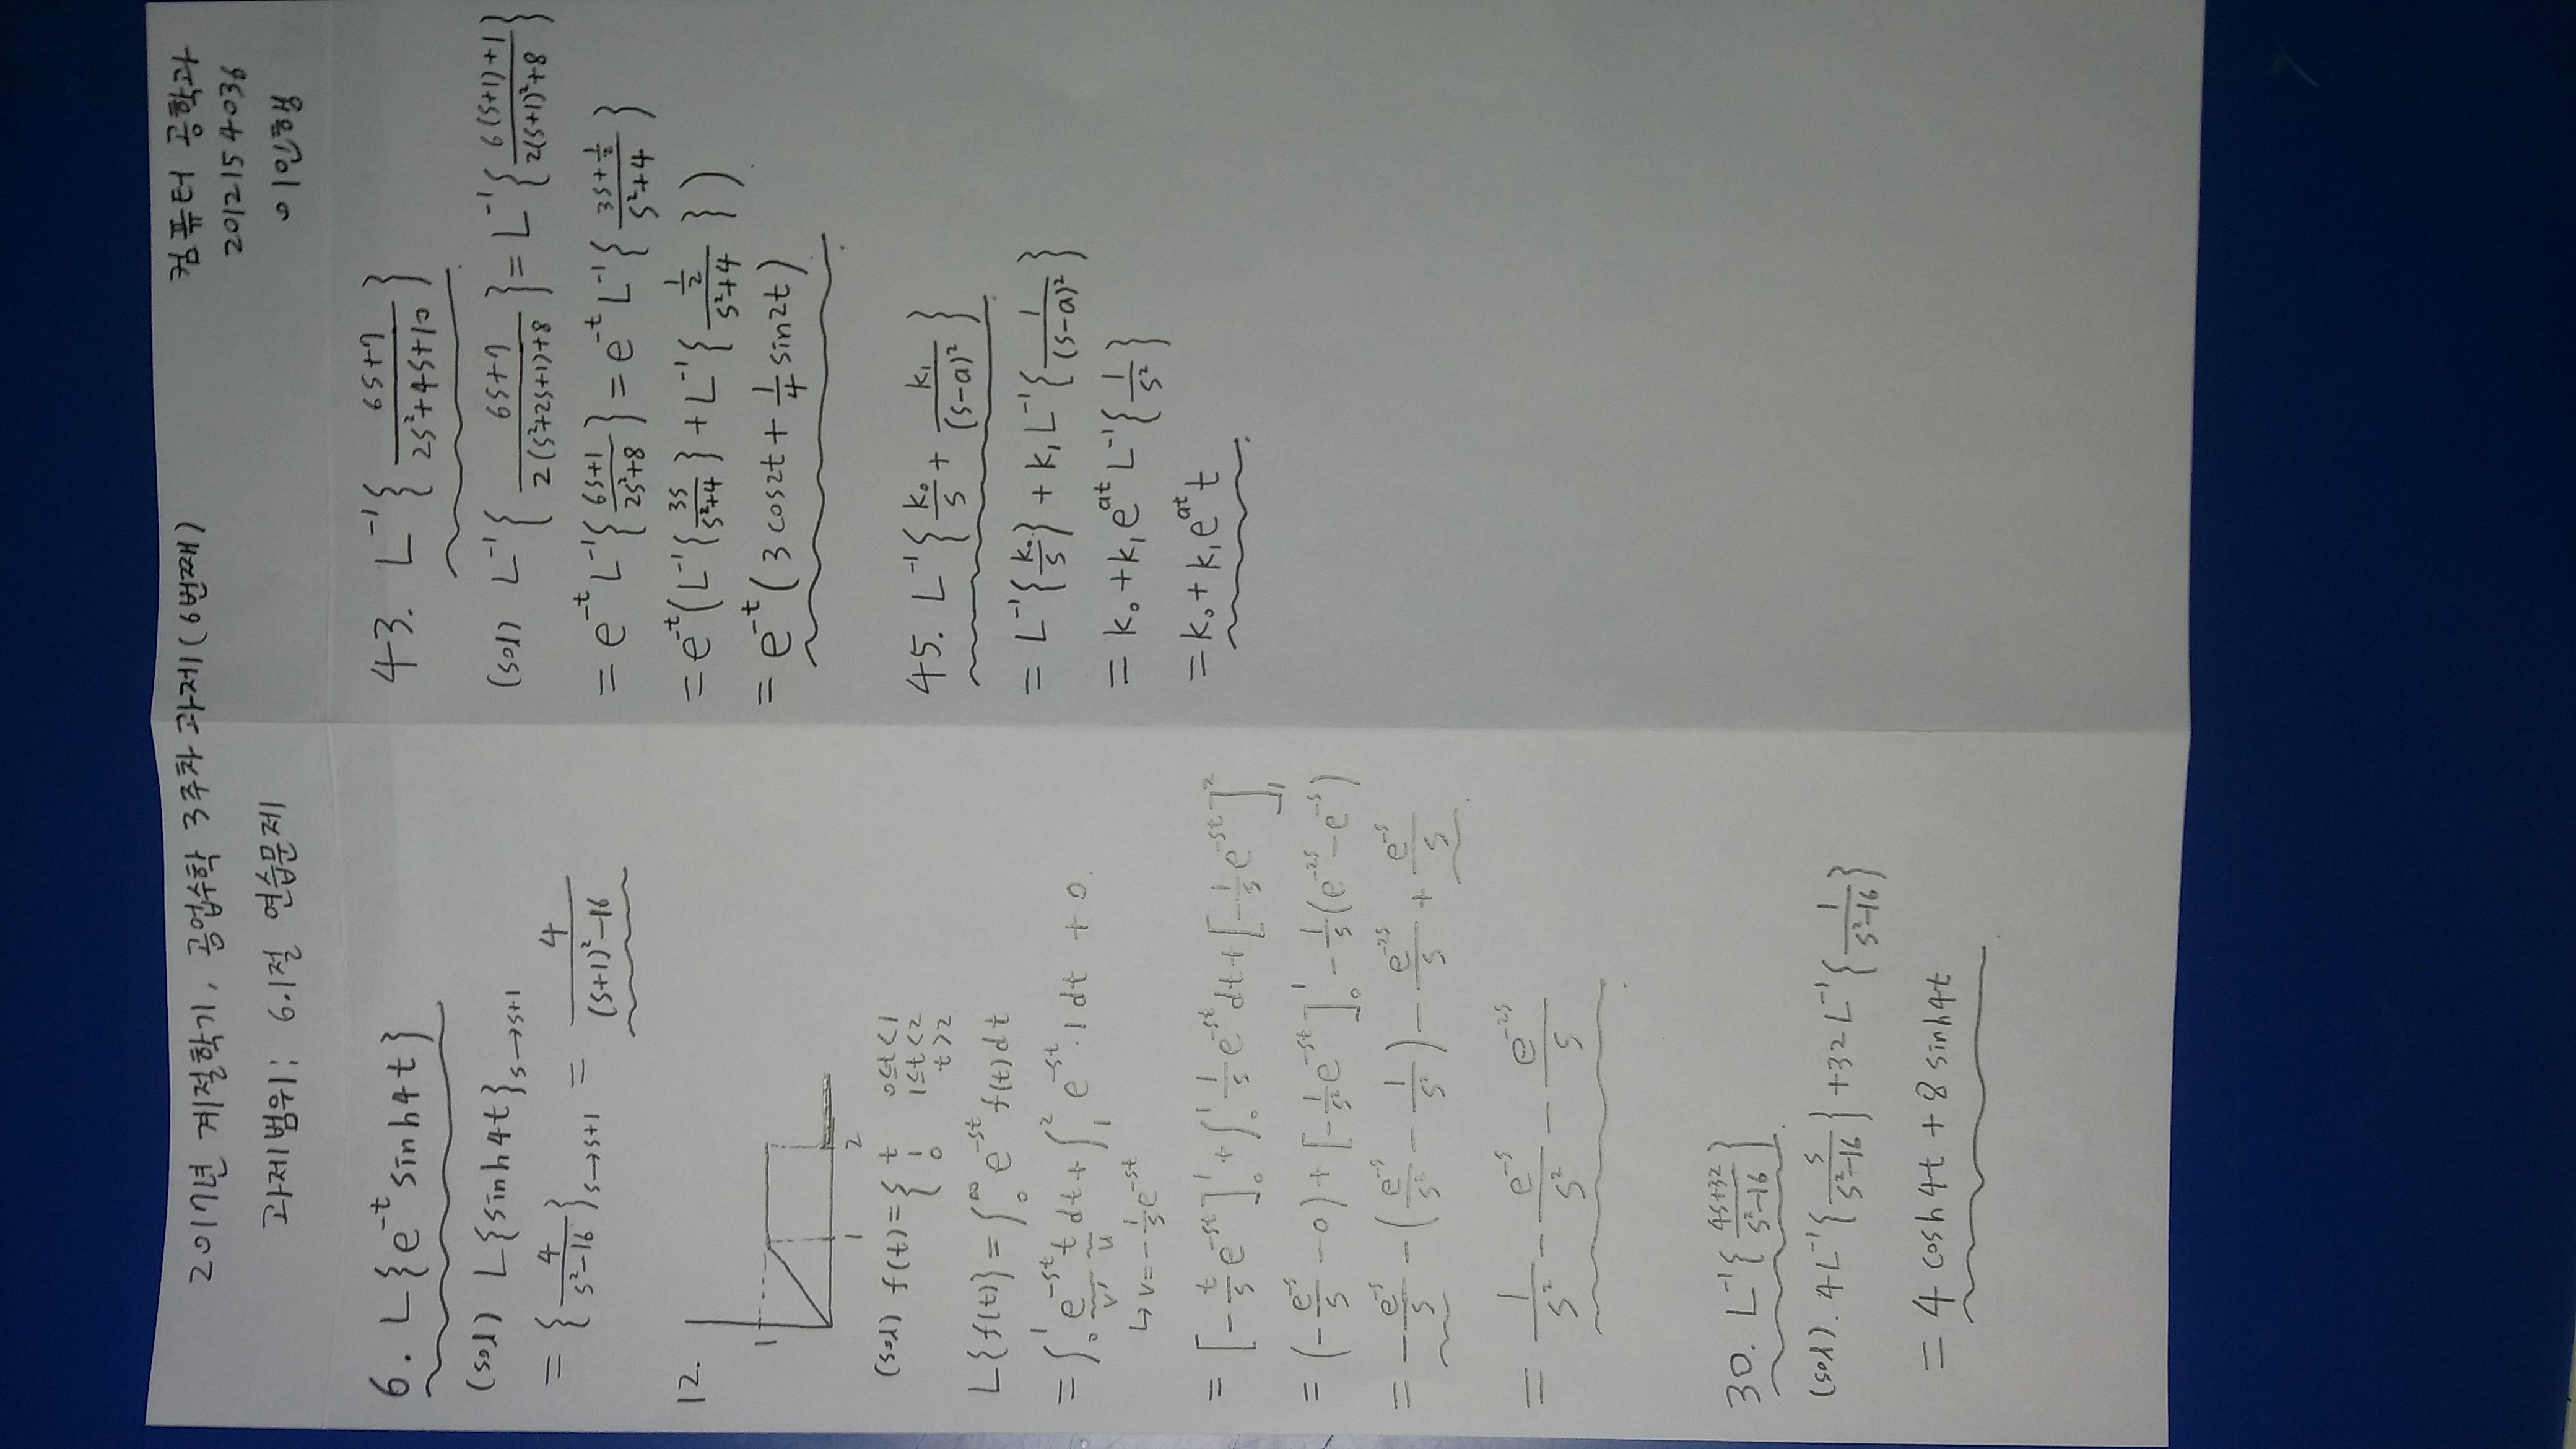 2017년 계절학기, 공업수학 3주차 과제(6번째)
과제범위: 6.1절 연습문제
컴퓨터 공학과
2012154036
이인행
6. L{e^-t sinh4t}
(sol) L{sinh4t}s→s+1
= {4/(s²-16)}s→s+1 = 4/((s+1)²-16)
12.
1
1 2
(sol) f(t)={ t 0≤t<1
1 1≤t<2
0 t>2
L{f(t)} = ∫₀^∞ e^-st f(t)dt
= ∫₀¹ e^-st t dt + ∫₁² e^-st·1dt + 0
v' u
↳ v=-1/s e^-st
= [-t/s e^-st]₀¹ + ∫₀¹ 1/s e^-st dt + [-1/s e^-st]₁²
= (-e^-s/s - 0) + [-1/s² e^-st]₀¹ - 1/s(e^-2s - e^-s)
= -e^-s/s - (e^-s/s² - 1/s²) - e^-2s/s + e^-s/s
= 1/s² - e^-s/s² - e^-2s/s
30. L⁻¹{(4s+32)/(s²-16)}
(sol). 4L⁻¹{s/(s²-16)} + 32L⁻¹{1/(s²-16)}
= 4 cosh4t + 8 sinh4t
43. L⁻¹{(6s+7)/(2s²+4s+10)}
(sol) L⁻¹{(6s+7)/(2(s²+2s+1)+8)} = L⁻¹{(6(s+1)+1)/(2(s+1)²+8)}
= e^-t L⁻¹{(6s+1)/(2s²+8)} = e^-t L⁻¹{(3s+1/2)/(s²+4)}
= e^-t(L⁻¹{3s/(s²+4)} + L⁻¹{(1/2)/(s²+4)})
= e^-t(3cos2t + 1/4 sin2t)
45. L⁻¹{k₀/s + k₁/(s-a)²}
= L⁻¹{k₀/s} + k₁L⁻¹{1/(s-a)²}
= k₀ + k₁e^at L⁻¹{1/s²}
= k₀ + k₁e^at t